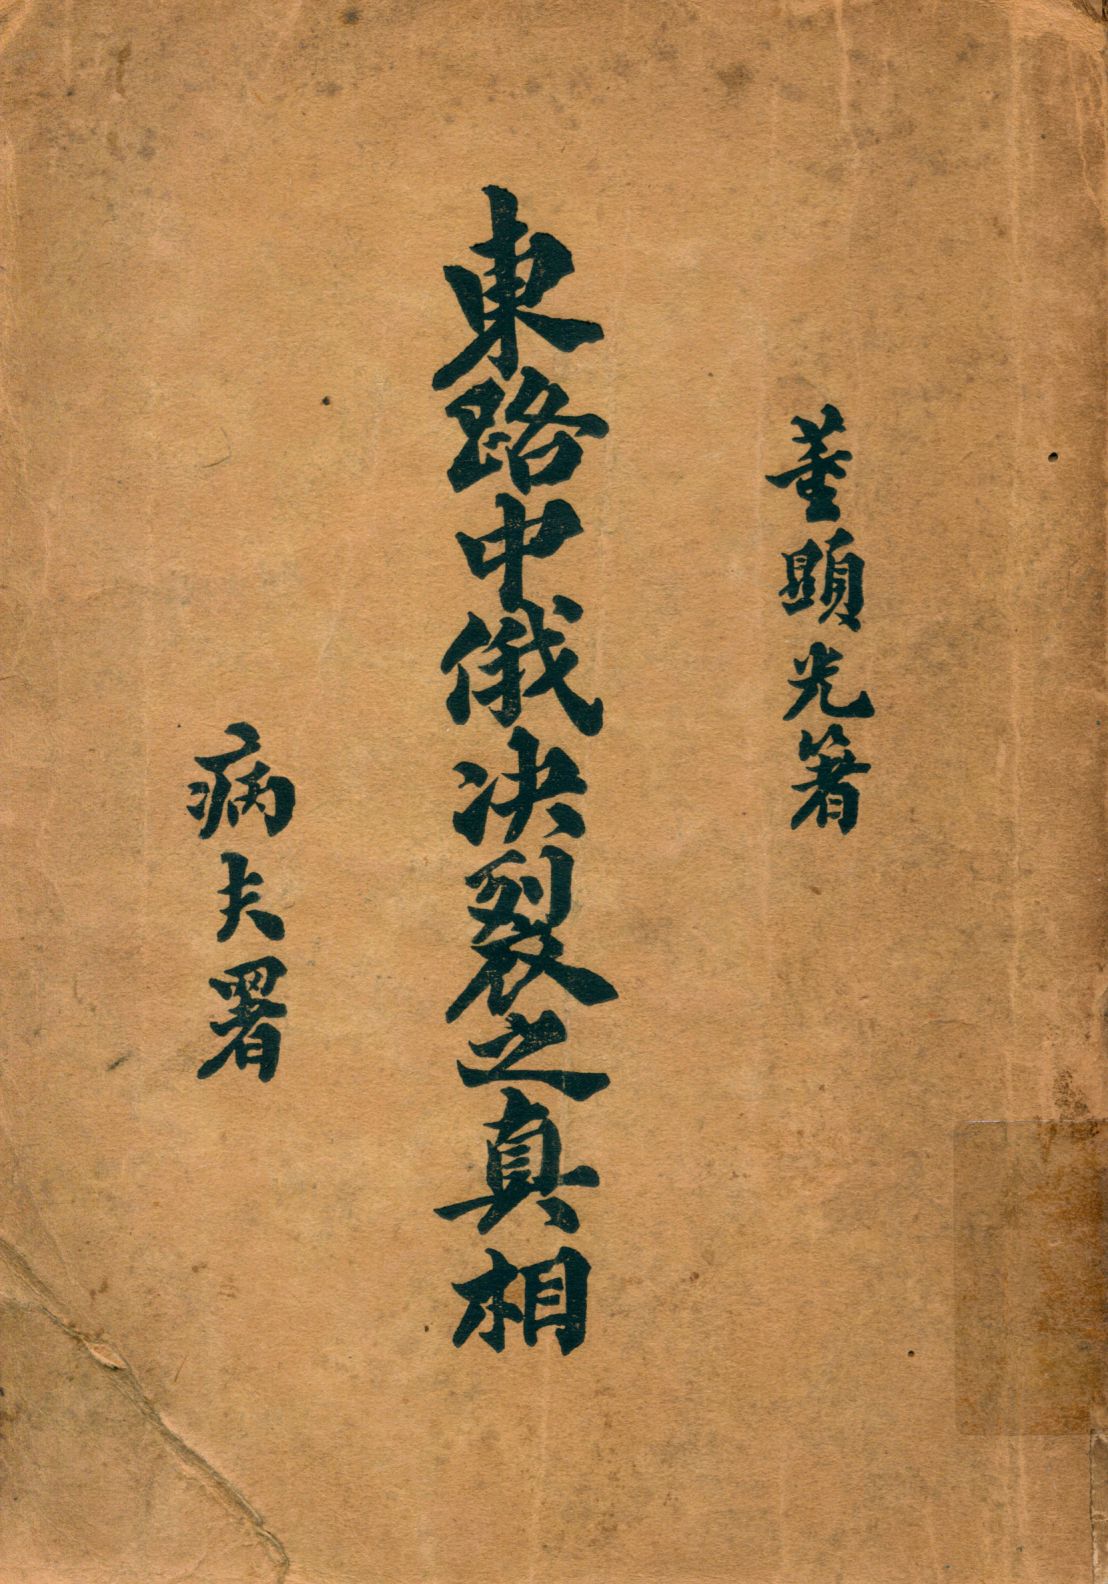 董顕光箸
東路中俄决裂之真相
病夫署